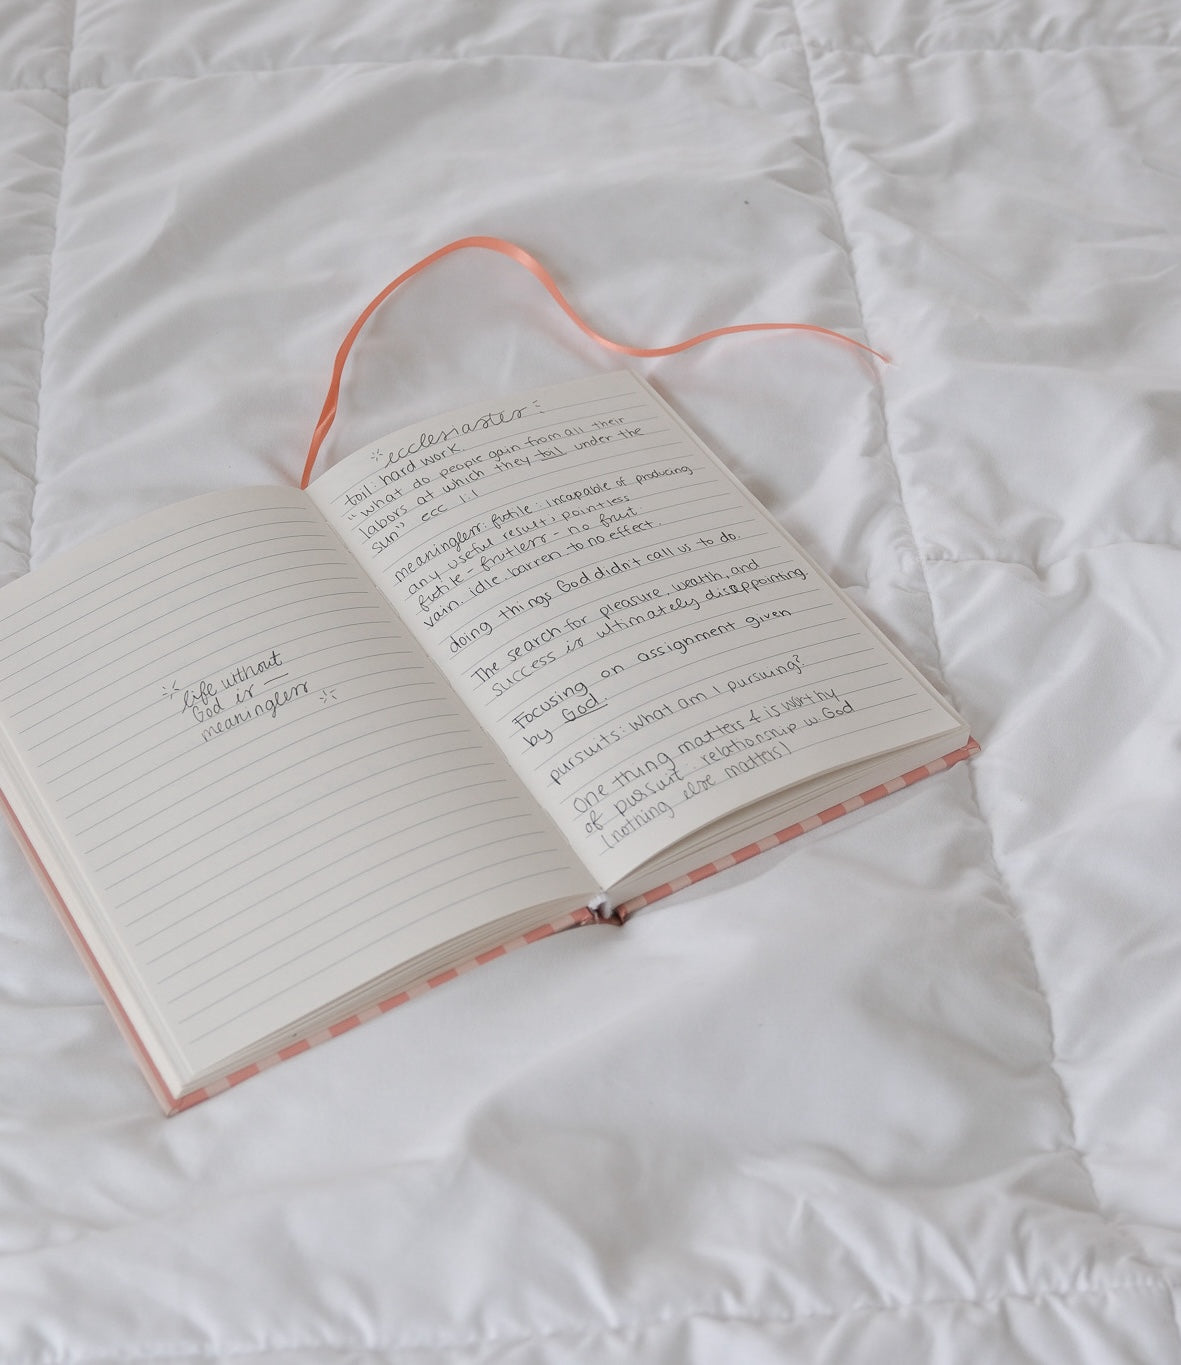 life without
God is —
meaningless
ecclesiastes
toil: hard work.
"what do people gain from all their
labors at which they toil under the
sun" ecc 1:1
meaningless: futile: incapable of producing
any useful result; pointless
futile - fruitless - no fruit
vain. idle. barren. to no effect.
doing things God didn't call us to do.
The search for pleasure, wealth, and
success is ultimately disappointing.
Focusing on assignment given
by God.
pursuits: what am I pursuing?
One thing matters & is worthy
of pursuit: relationship w. God
(nothing else matters)